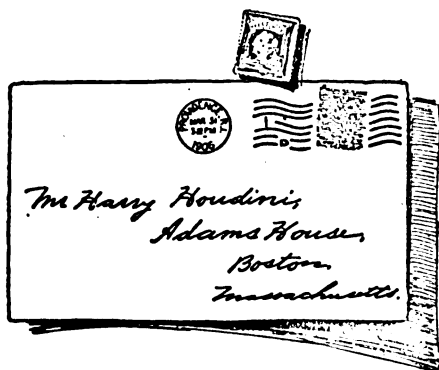 PROVIDENCE, R.I.
MAR 31
1906
1
D
Mr Harry Houdini,
Adams House,
Boston,
Massachusetts.